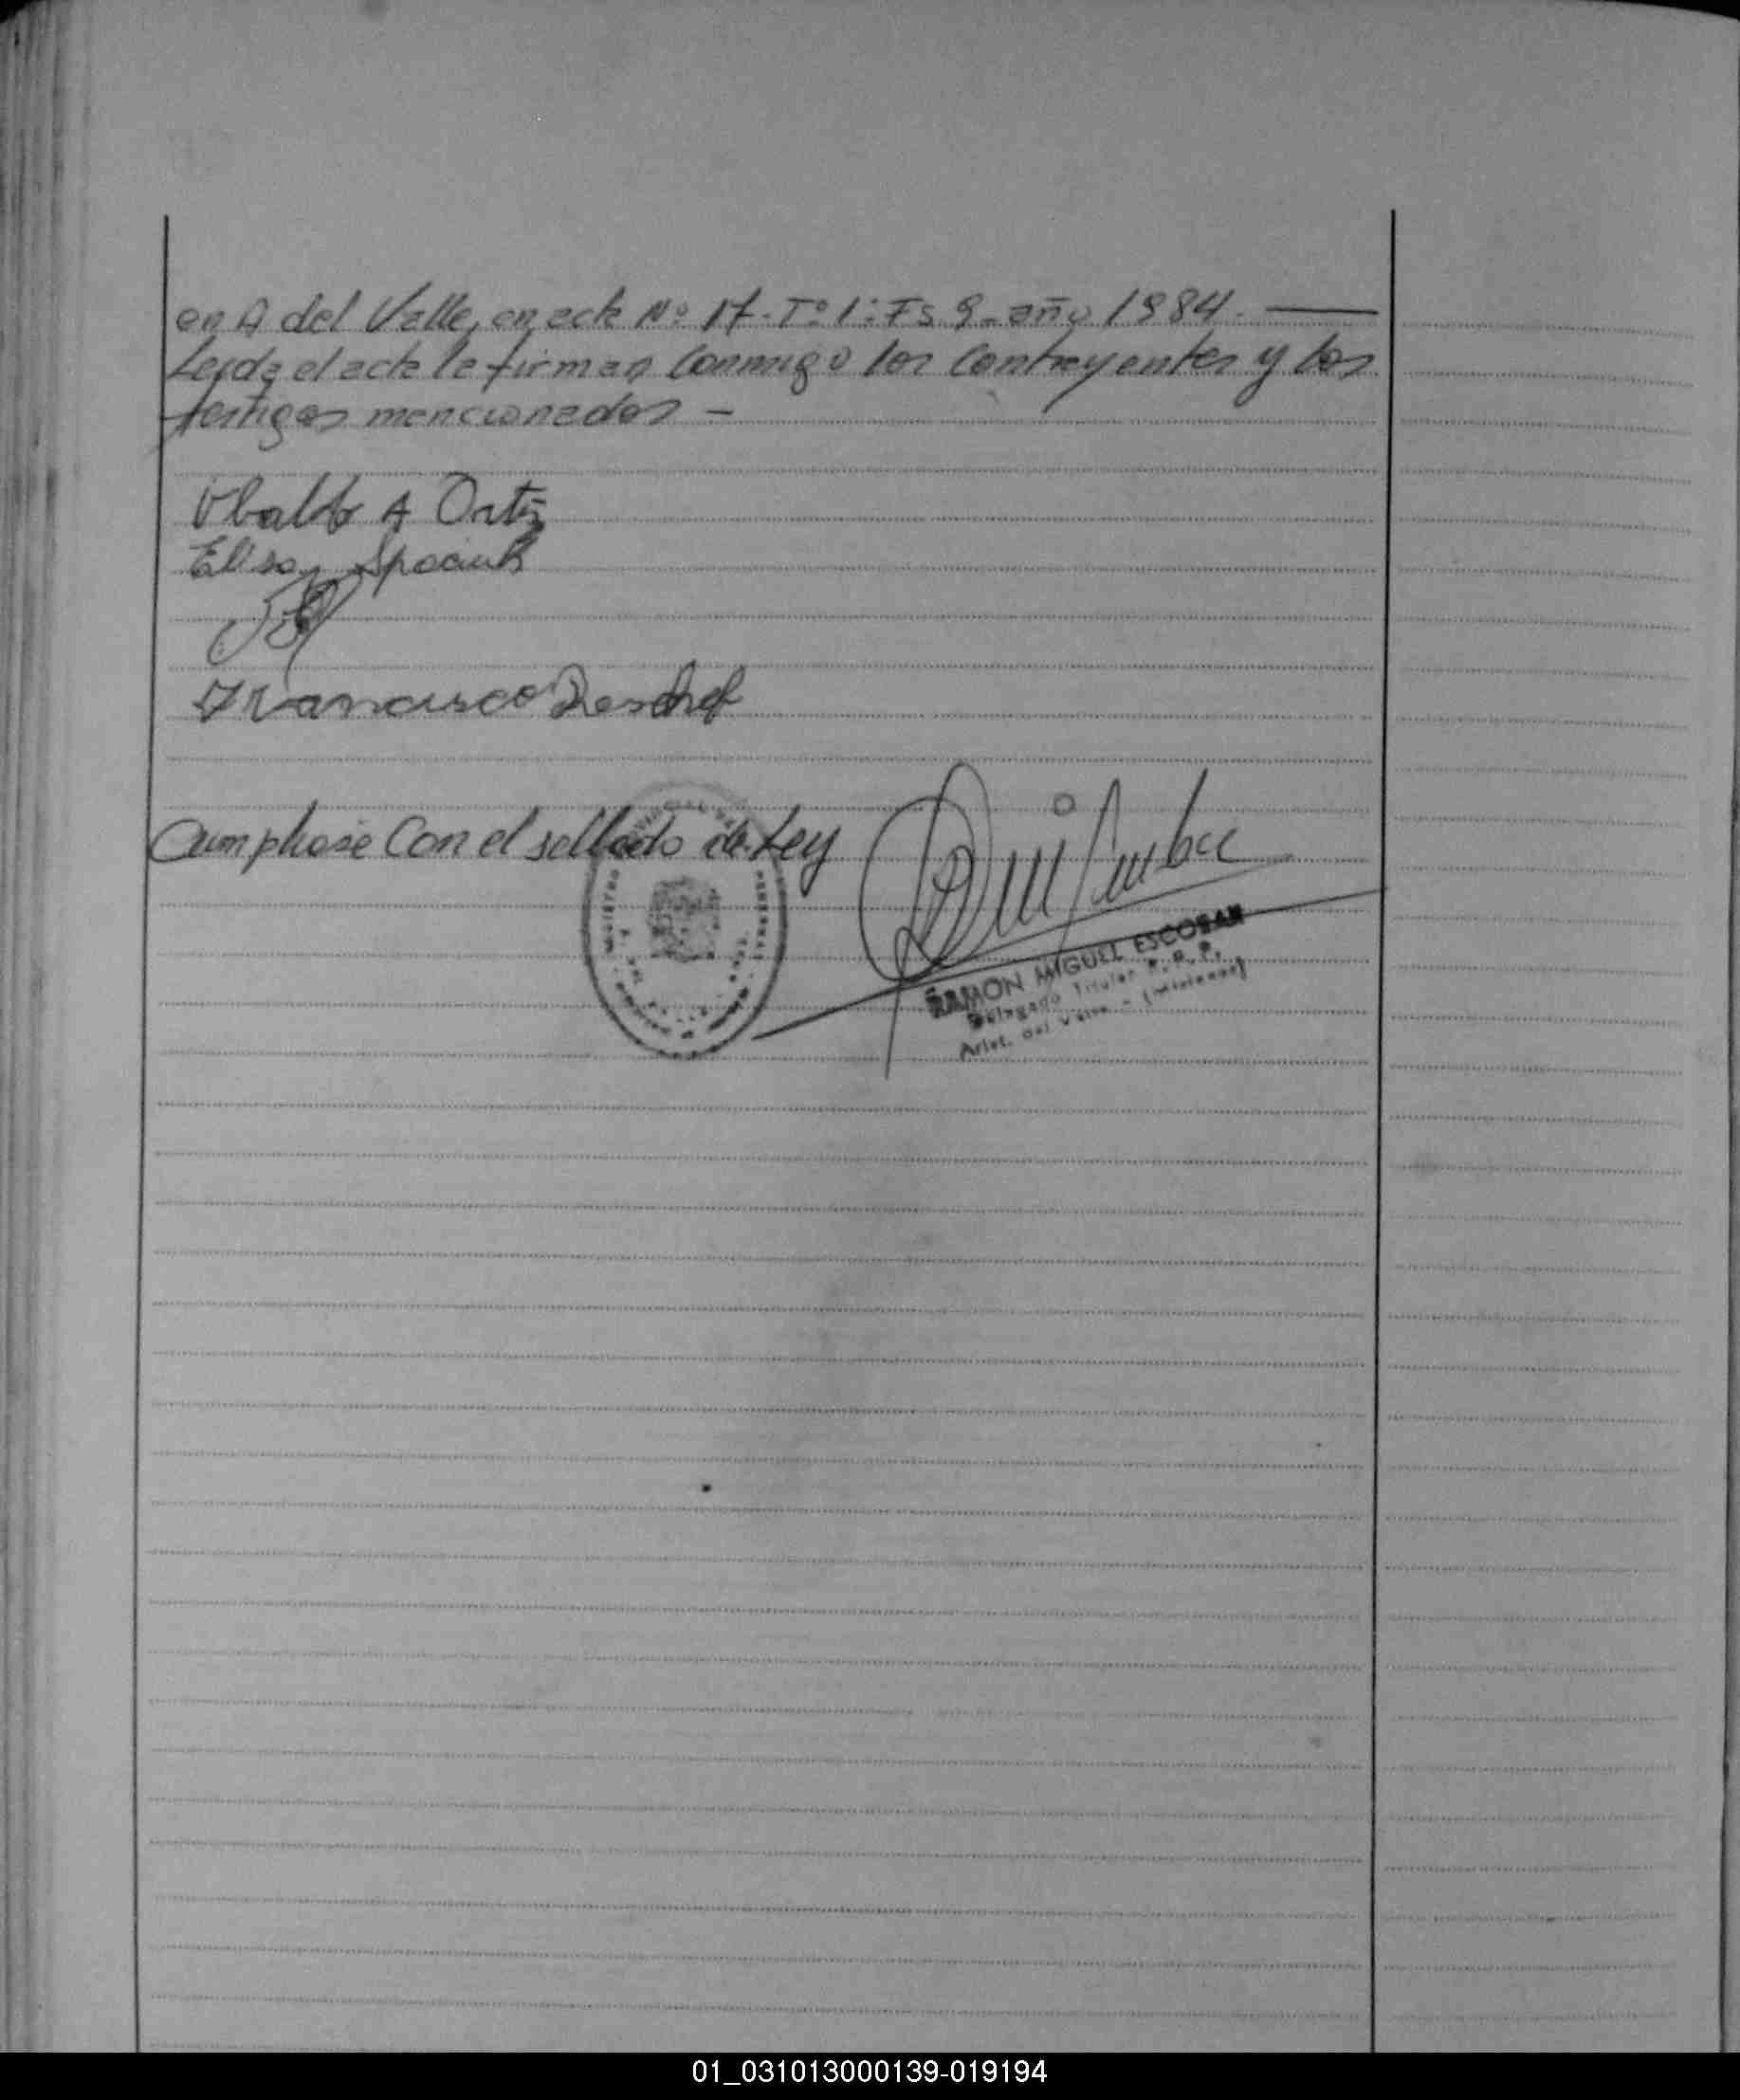 en A del Valle, en acta Nº 17- Tº 1: Fs 9- año 1984.
Leida el acta la firman conmigo los contrayentes y los
testigos mencionados -
Ubaldo A Ortiz
Elisa Spaciuk
Francisco
Cumplase con el sellado de Ley
RAMON MIGUEL ESCOBAR
Delegado Titular R. P. P.
Arist. del Valle - (Misiones)
01_031013000139-019194